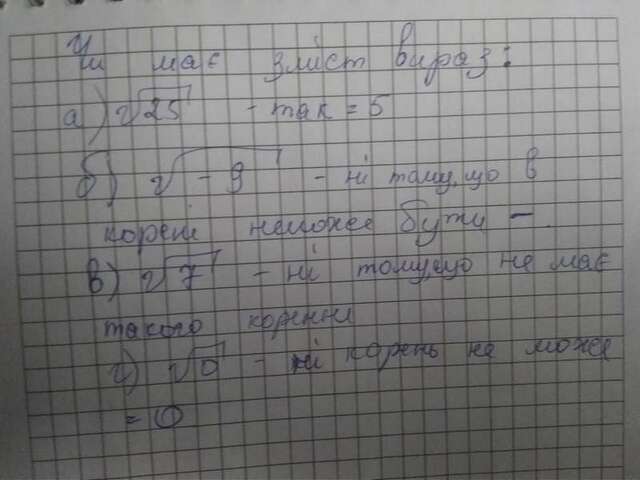 Чи має зміст вираз:
а) √25 - так = 5
б) √-9 - ні тому, що в
корені неможе бути -.
в) √7 - ні тому,що не має
такого кореня
г) √0 - ні корень не може
= 0